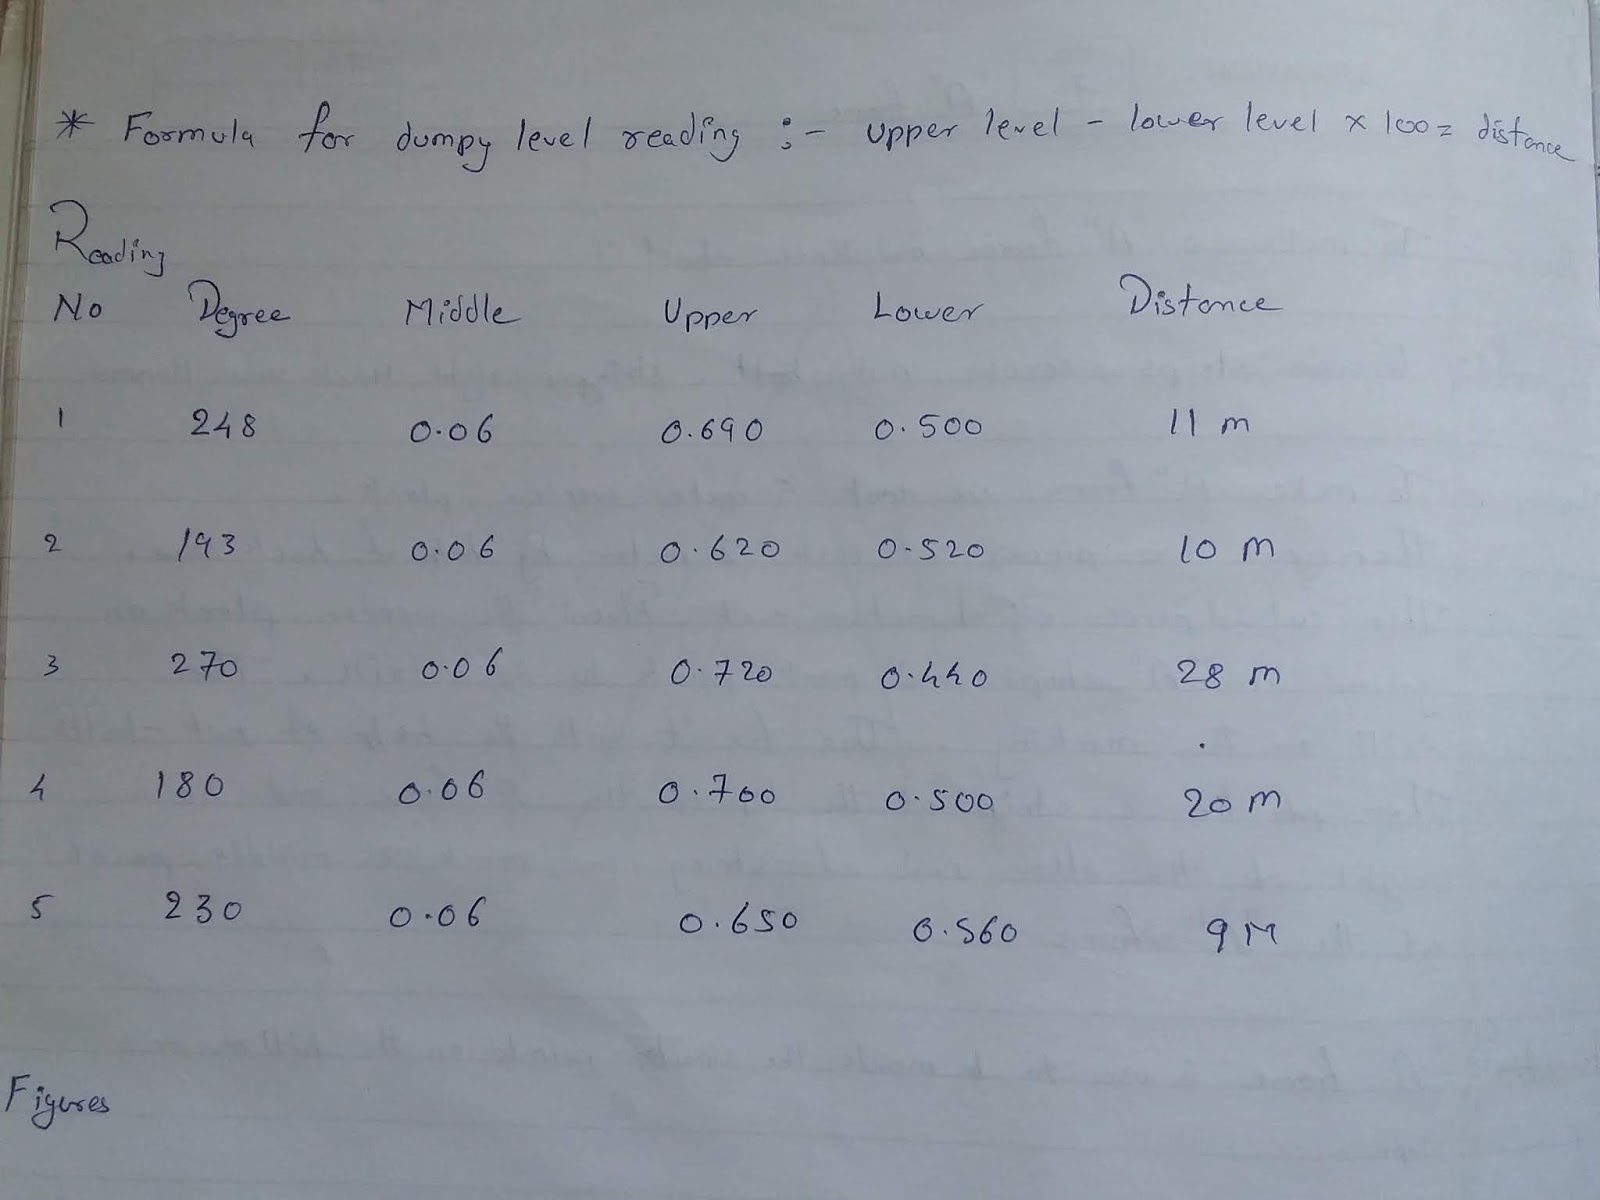 * Formula for dumpy level reading :- upper level - lower level x 100 = distance
Reading
No Degree Middle Upper Lower Distance
1 248 0.06 0.690 0.500 11 m
2 193 0.06 0.620 0.520 10 m
3 270 0.06 0.720 0.440 28 m
4 180 0.06 0.700 0.500 20 m
5 230 0.06 0.650 0.560 9 M
Figures